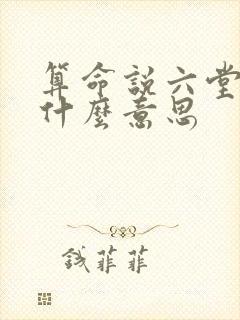 算命說六堂
什麼意思
钱菲菲